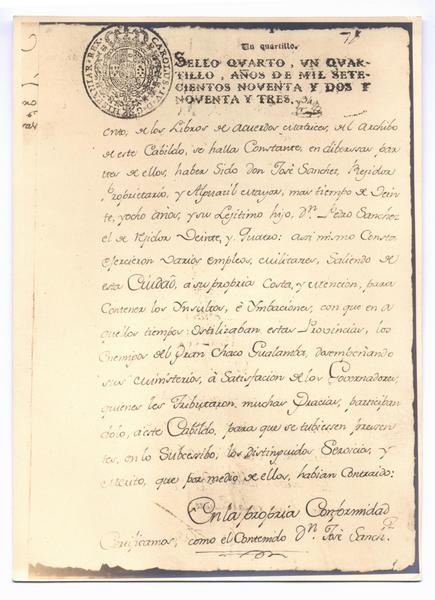 Un quartillo.
SELLO QVARTO, VN QVAR-
TILLO, AÑOS DE MIL SETE-
CIENTOS NOVENTA Y DOS Y
NOVENTA Y TRES.
ento, de los Libros de acuerdos, del Archibo
de este Cabildo, se halla Constante, en diberssas par
tes de ellos, haber Sido don Jose Sanchez, Rejidor
Proprietario, y Alguazil mayor, mas tiempo de Vein
te, y ocho años, y su Lejitimo hijo, Dn. Pedro Sanchez
el de rejidor Veinte, y Quatro: assi mismo Consta,
ejercieron varios empleos, militares, Saliendo de
esta Ciudad, a su propria Costa, y mencion, para
Contener los Ynsultos, è Ymbaciones, con que en a
quellos tiempos ostilizaban estas Provincias, los
Enemigos del Gran Chaco Gualamba, desempeñando
sus ministerios, à Satisfacion de los Governadores,
quienes les Tributaron muchas Gracias, participan
dolo, a este Cabildo, para que se tubiessen pressen
tes, en lo Subcesibo, los distinguidos Servicios, y
merito, que por medio de ellos, habian Contraido:
En la propria Conformidad
Certificamos, como el Contenido Dn. Jose Sanchz.